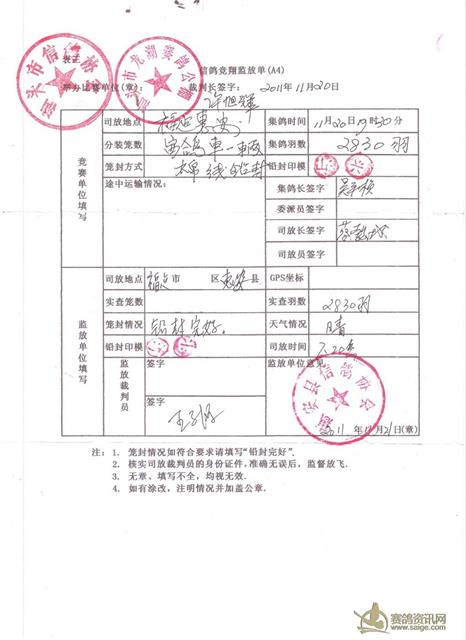 汕头市信鸽协会
汕头市龙湖赛鸽公棚
表五
信鸽竞翔监放单(A4)
举办比赛单位(章): 裁判长签字: 2011年11月20日
竞赛单位填写
司放地点 福建惠安 集鸽时间 11月20日19时30分
分装笼数 集鸽羽数 2830羽
笼封方式 棉线铅封 铅封印模
途中运输情况: 集鸽长签字
委派员签字
司放长签字
司放员签字
监放单位填写
司放地点 福建市 区惠安县 GPS坐标
实查笼数 实查羽数 2830羽
笼封情况 铅封完好。 天气情况 晴
铅封印模 司放时间 7.20
监放裁判员 签字 监放单位意见
签字
惠安县信鸽协会
2011年11月21日(章)
注: 1. 笼封情况如符合要求请填写"铅封完好".
2. 核实司放裁判员的身份证件,准确无误后,监督放飞.
3. 无章、填写不全,均视无效.
4. 如有涂改,注明情况并加盖公章.
赛鸽资讯网
www.saige.com